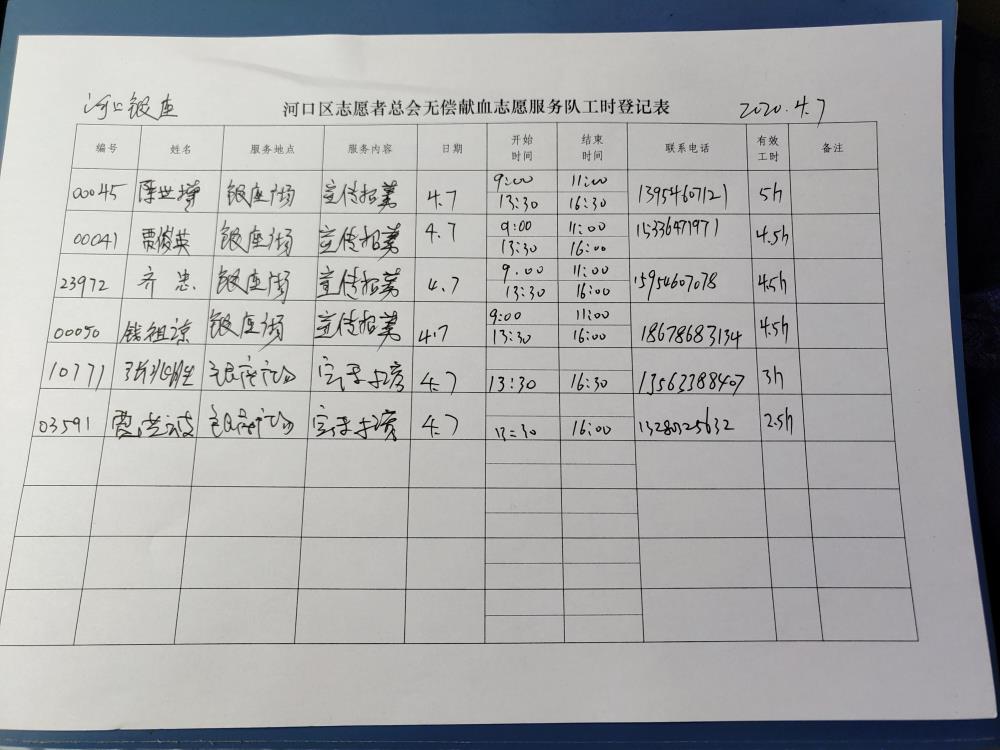 河口银座 河口区志愿者总会无偿献血志愿服务队工时登记表 2020.4.7
编号 姓名 服务地点 服务内容 日期 开始时间 结束时间 联系电话 有效工时 备注
9:00 11:00
00045 银座广场 宣传招募 4.7 13:30 16:30 13954607121 5h
00041 贾俊英 银座广场 宣传招募 4.7 9:00 11:00 15336471971 4.5h
13:30 16:00
9:00 11:00
23972 齐忠 银座广场 宣传招募 4.7 13:30 16:00 15954607078 4.5h
9:00 11:00
00050 钱祖谅 银座广场 宣传招募 4.7 13:30 16:00 18678683134 4.5h
10771 张兆胜 银座广场 宣传招募 4.7 13:30 16:30 13563388407 3h
03591 贾洪波 银座广场 宣传招募 4.7 13:30 16:00 2.5h